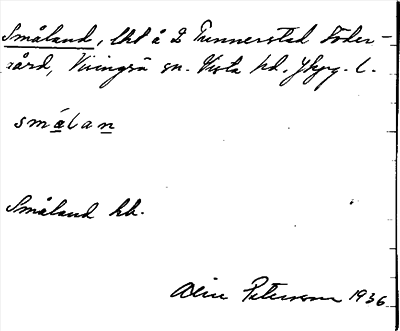 Småland, lht å 2 Tunnerstad Söder-
gård, Visingsö sn. Vista hd. Jkpg. l.
småla n
Småland hb.
Petersson 1936